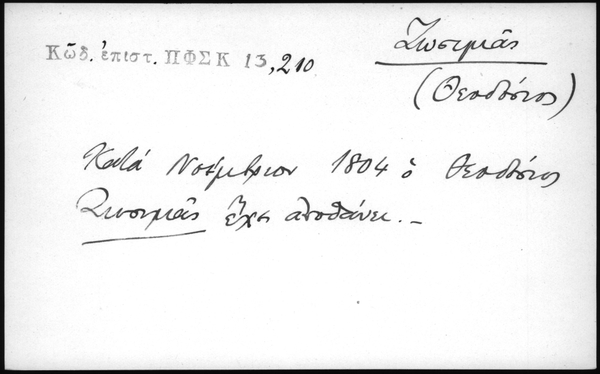 Κῶδ. ἐπιστ. ΠΦΣΚ 13,210
Ζωσιμᾶς
(Θεοδόσιος)
Κατά Νοέμβριον 1804 ὁ Θεοδόσιος
Ζωσιμᾶς ἔχει ἀποθάνει. –